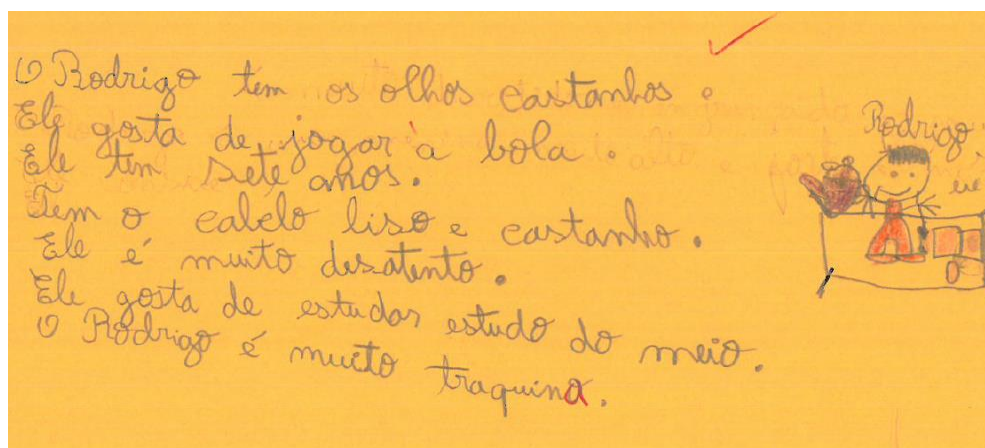 O Rodrigo tem os olhos castanhos.
Ele gosta de jogar à bola.
Ele tem sete anos.
Tem o cabelo liso e castanho.
Ele é muito desatento.
Ele gosta de estudar estudo do meio.
O Rodrigo é muito traquina.
Rodrigo